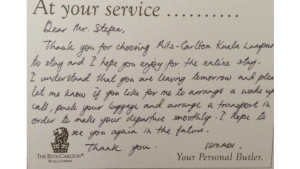 At your service ..........
Dear Mr. Stepan,
Thank you for choosing Ritz-Carlton Kuala Lumpur
to stay and I hope you enjoy for the entire stay.
I understand that you are leaving tomorrow and please
let me know if you like for me to arrange a wake up
call, pack your luggage and arrange a transport in
order to make your departure smoothly. I hope to
see you again in the future.
Thank you.
THE RITZ-CARLTON
KUALA LUMPUR
Your Personal Butler.